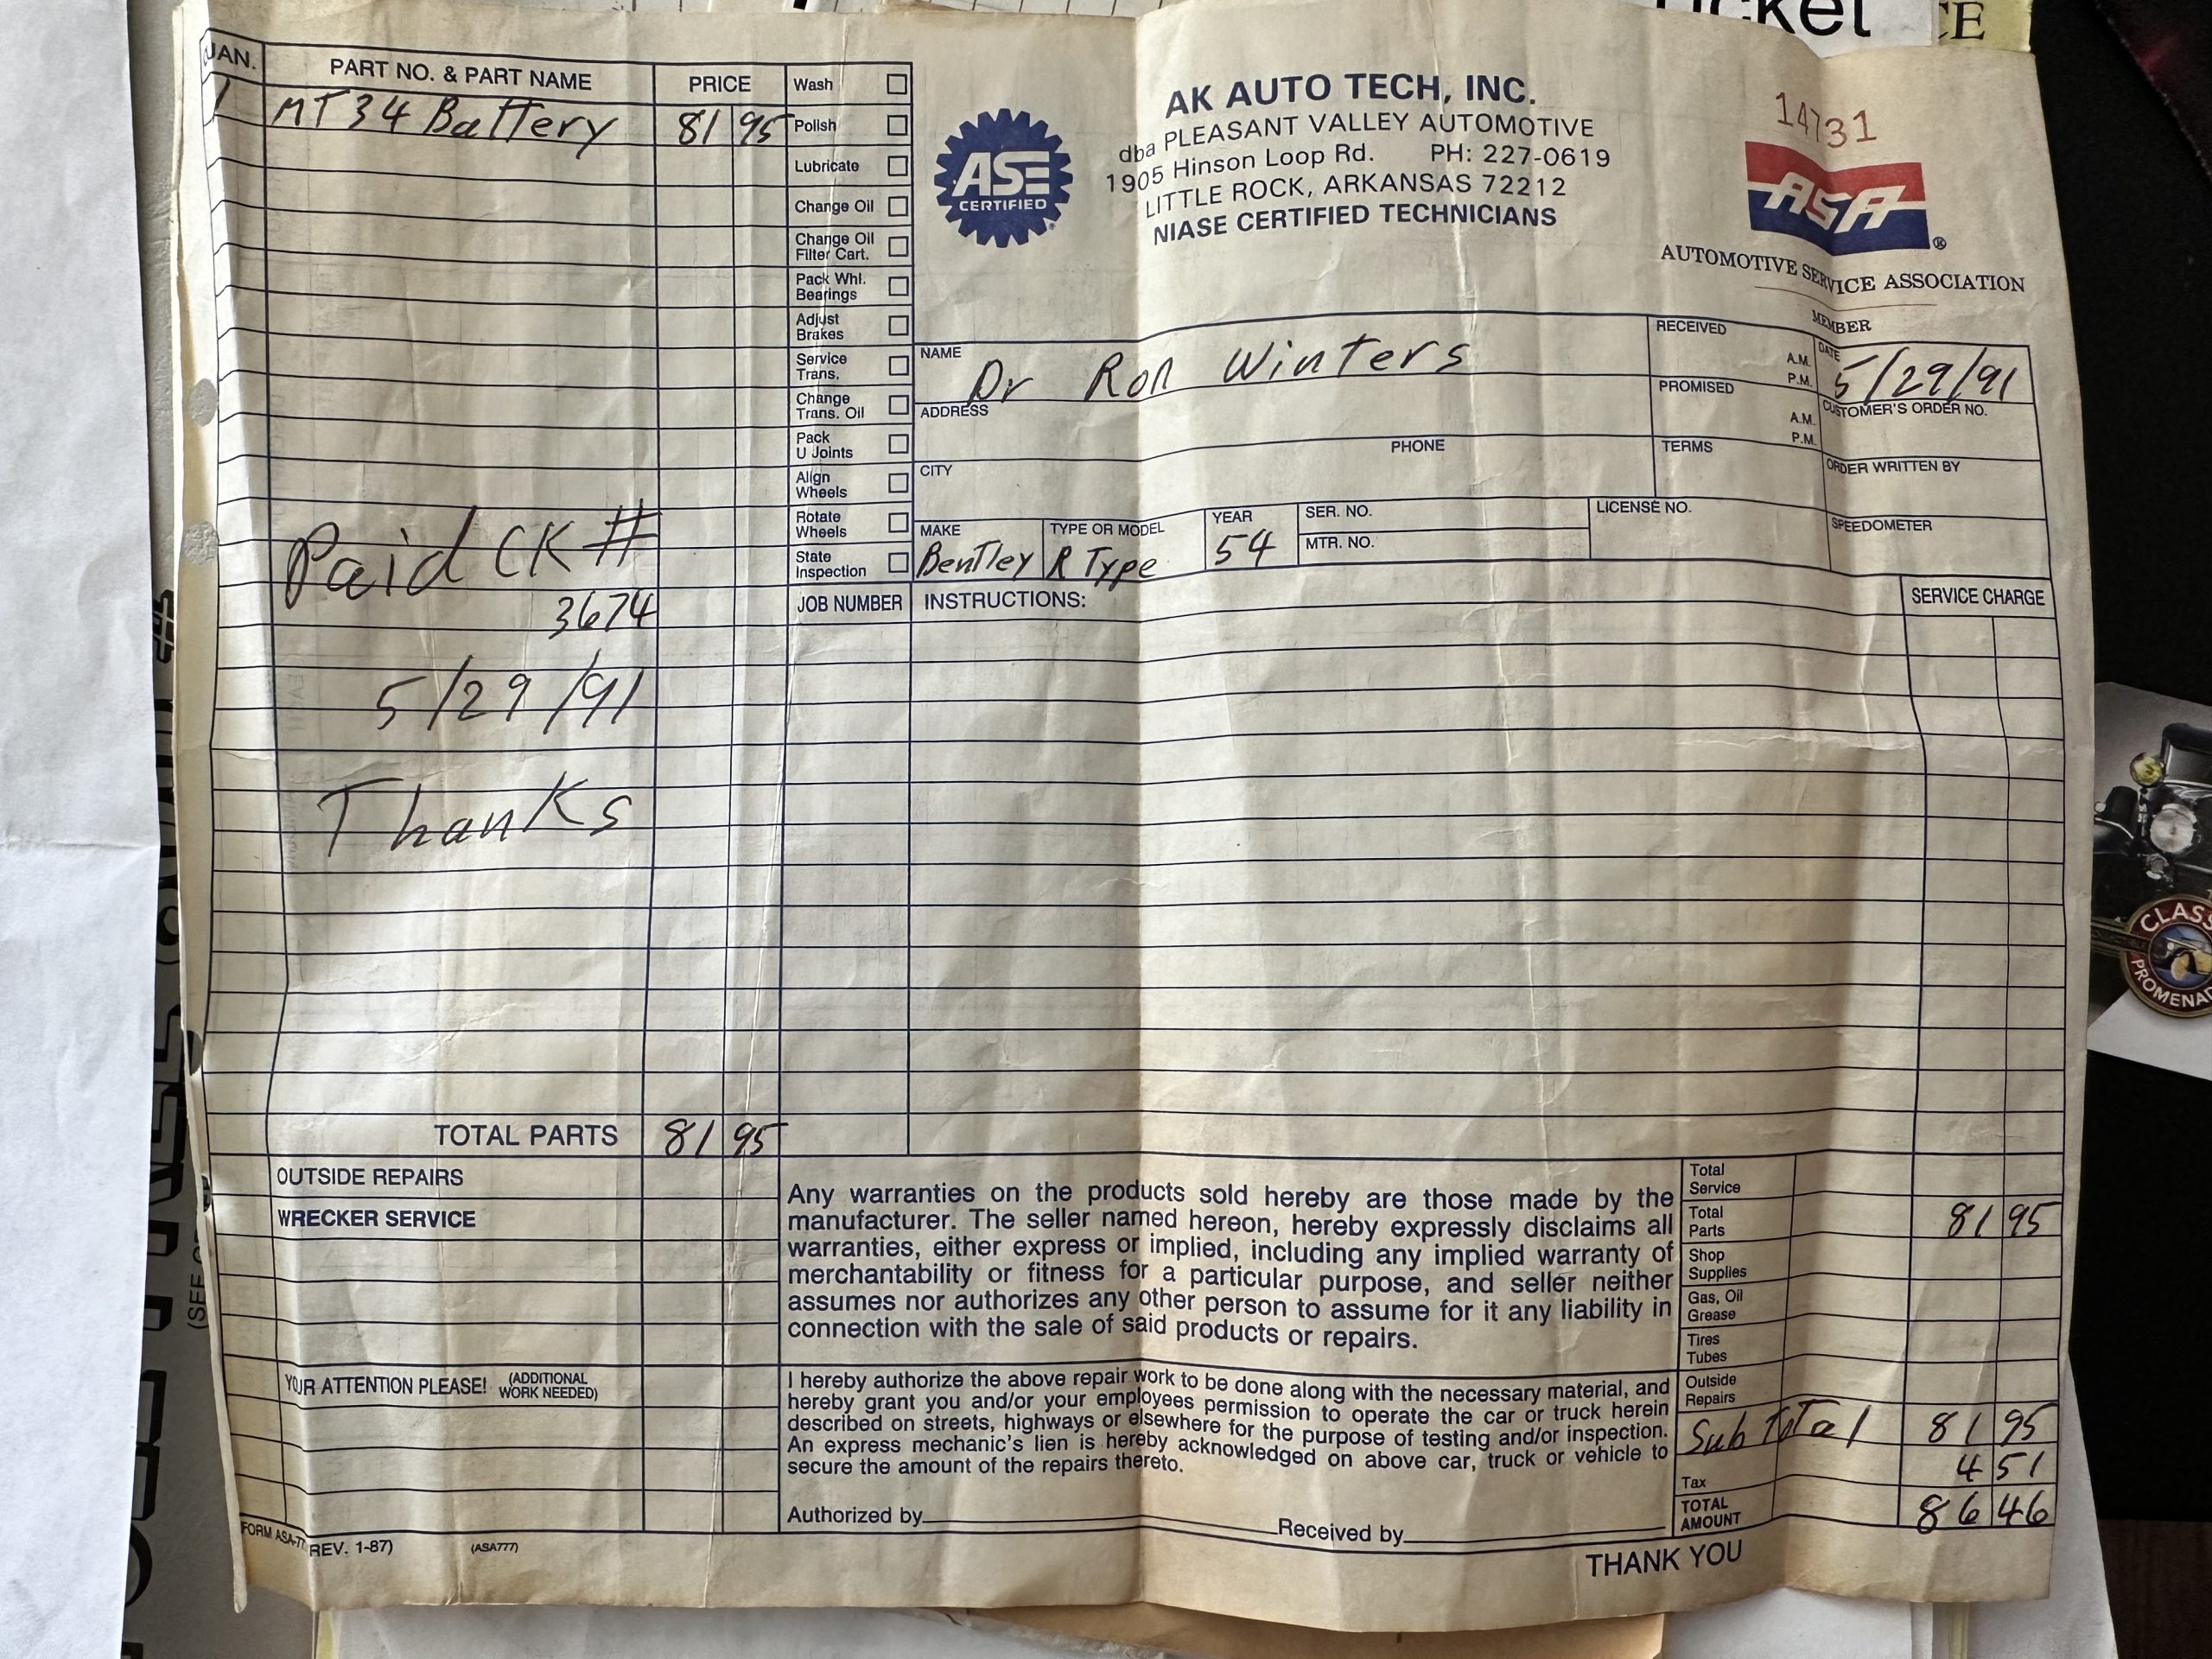 QUAN.
PART NO. & PART NAME
PRICE
1 MT34 Battery 81 95
Paid CK #
3674
5/29/91
Thanks
TOTAL PARTS 81 95
OUTSIDE REPAIRS
WRECKER SERVICE
YOUR ATTENTION PLEASE! (ADDITIONAL
WORK NEEDED)
FORM ASA-77
(REV. 1-87)
(ASA777)
Wash
Polish
Lubricate
Change Oil
Change Oil
Filter Cart.
Pack Whl.
Bearings
Adjust
Brakes
Service
Trans.
Change
Trans. Oil
Pack
U Joints
Align
Wheels
Rotate
Wheels
State
Inspection
ASE
CERTIFIED
AK AUTO TECH, INC.
dba PLEASANT VALLEY AUTOMOTIVE
1905 Hinson Loop Rd. PH: 227-0619
LITTLE ROCK, ARKANSAS 72212
NIASE CERTIFIED TECHNICIANS
14731
ASA ®
AUTOMOTIVE SERVICE ASSOCIATION
MEMBER
NAME
Dr Ron Winters
RECEIVED
A.M.
P.M.
DATE
5/29/91
ADDRESS
PROMISED
A.M.
P.M.
CUSTOMER'S ORDER NO.
CITY
PHONE
TERMS
ORDER WRITTEN BY
MAKE
Bentley
TYPE OR MODEL
R Type
YEAR
54
SER. NO.
MTR. NO.
LICENSE NO.
SPEEDOMETER
JOB NUMBER
INSTRUCTIONS:
SERVICE CHARGE
Any warranties on the products sold hereby are those made by the
manufacturer. The seller named hereon, hereby expressly disclaims all
warranties, either express or implied, including any implied warranty of
merchantability or fitness for a particular purpose, and seller neither
assumes nor authorizes any other person to assume for it any liability in
connection with the sale of said products or repairs.
I hereby authorize the above repair work to be done along with the necessary material, and
hereby grant you and/or your employees permission to operate the car or truck herein
described on streets, highways or elsewhere for the purpose of testing and/or inspection.
An express mechanic's lien is hereby acknowledged on above car, truck or vehicle to
secure the amount of the repairs thereto.
Authorized by
Received by
Total
Service
Total
Parts 81 95
Shop
Supplies
Gas, Oil
Grease
Tires
Tubes
Outside
Repairs
Sub Total 81 95
Tax 4 51
TOTAL
AMOUNT 86 46
THANK YOU
CLASS
PROMENA